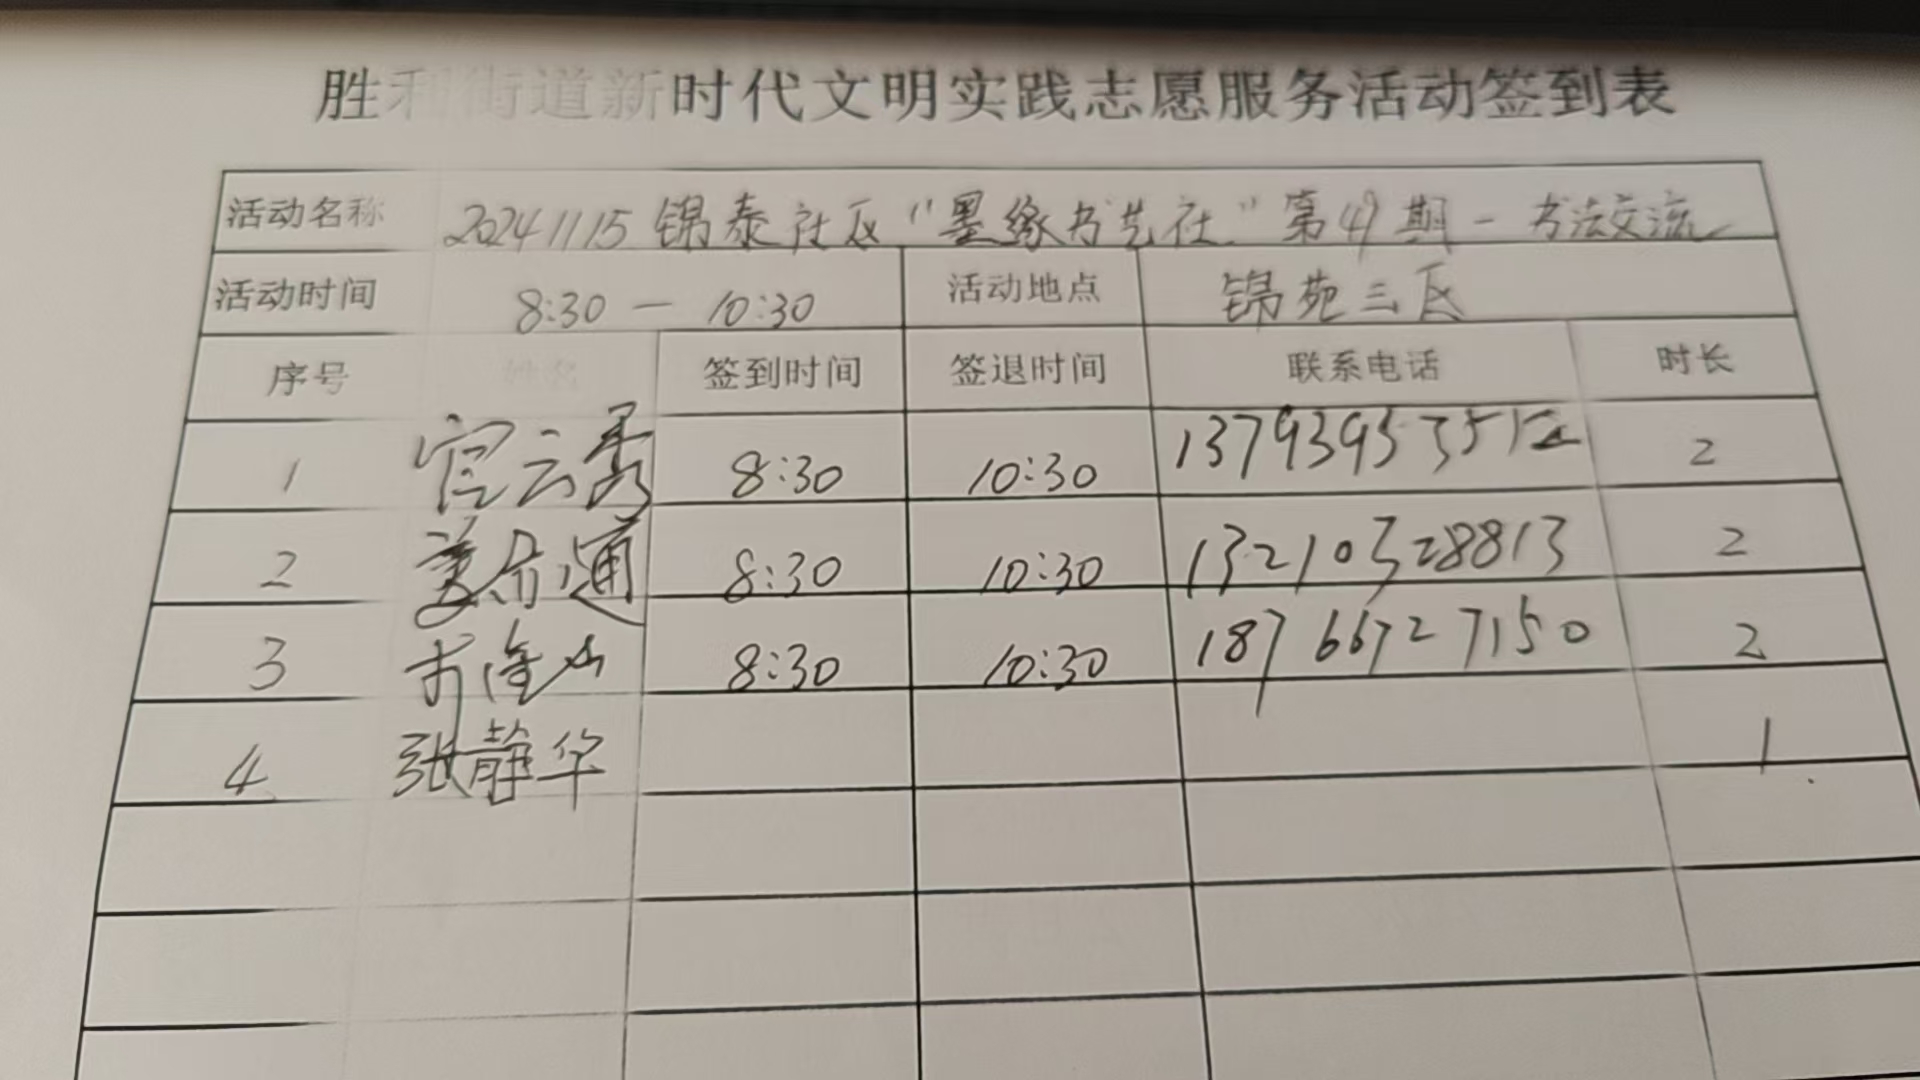 胜利街道新时代文明实践志愿服务活动签到表
活动名称 20241115 锦泰社区“墨缘书艺社”第49期－书法交流
活动时间 8:30 — 10:30 活动地点 锦苑三区
序号 姓名 签到时间 签退时间 联系电话 时长
1 官云秀 8:30 10:30 2
2 姜作通 8:30 10:30 13210328813 2
3 8:30 10:30 18766727150 2
4 张静华 1